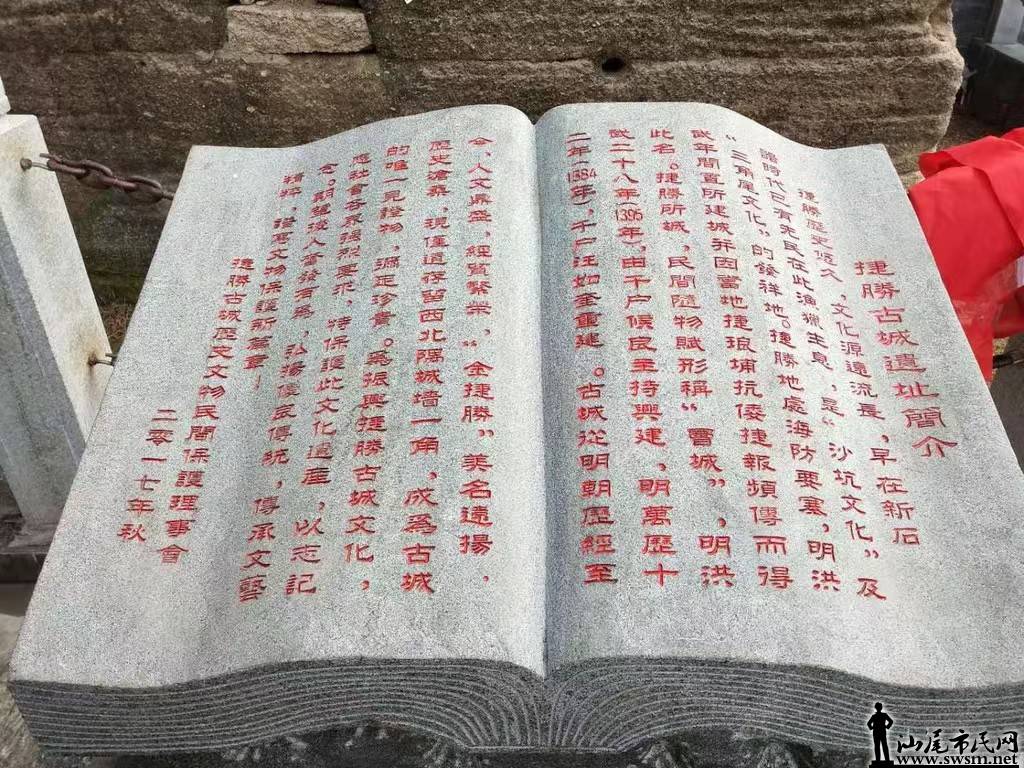 捷勝古城遺址簡介
捷勝歷史悠久，文化源遠流長，早在新石
器時代已有先民在此漁獵生息，是“沙坑文化”及
“三角尾文化”的發祥地。捷勝地處海防要塞，明洪
武年間置所建城并因當地捷埌埔抗倭捷報頻傳而得
此名。捷勝所城，民間隨物賦形稱“曹城”，明洪
武二十八年(1395年)，由千户候良主持興建，明萬歷十
二年(1384年)，千户汪如奎重建。古城從明朝歷經至
今、人文鼎盛，經貿繁榮，“金捷勝”美名遠揚，
歷史滄桑，現僅遺存留西北隅城墙一角，成爲古城
的唯一見證物，彌足珍貴。爲振興捷勝古城文化，
應社會各界強烈要求，特保護此文化遺産，以志記
念。期望後人奮發有爲，弘揚優良傳統，傳承文藝
精粹，譜寫文物保護新篇章！
捷勝古城歷史文物民間保護理事會
二零一七年秋
汕尾市民网
www.swsm.net